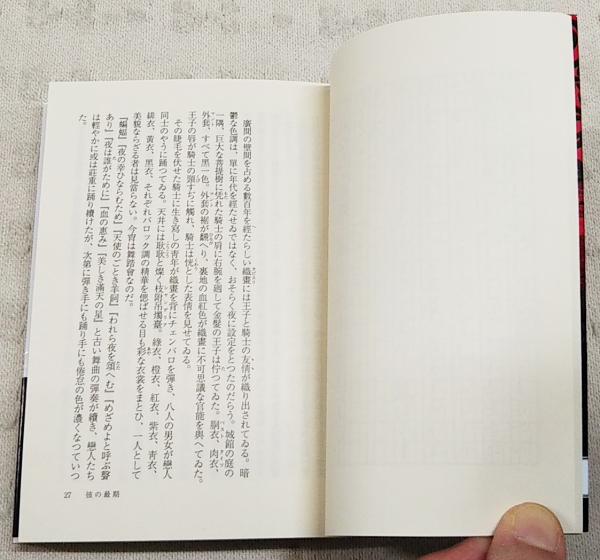 廣間の壁間を占める數百年を經たらしい織畫には王子と騎士の友情が織り出されてゐる。暗
鬱な色調は、單に年代を經たせゐではなく、おそらく夜に設定をとつたのだらう。城館の庭の
一隅、巨大な菩提樹に凭れた騎士の肩に右腕を廻して金髮の王子は佇つてゐた。胴衣、肉衣、
外套、すべて黑一色。外套の裾が飜へり、裏地の血紅色が織畫に不可思議な官能を與へてゐた。
王子の唇が騎士の頸すぢに觸れ、騎士は恍とした表情を見せてゐる。
その睫毛を伏せた騎士に生き寫しの青年が織畫を背にチェンバロを彈き、八人の男女が戀人
同士のやうに踊つてゐる。天井には耿耿と燦く枝附吊燭臺。綠衣、橙衣、紅衣、紫衣、青衣、
緋衣、黃衣、黑衣、それぞれバロック調の精華を偲ばせる目も彩な衣裳をまとひ、一人として
美貌ならざる者は見當らない。今宵は舞踏會なのだ。
『蝙蝠』『夜の幸ひならむため』『天使のごとき羊飼』『われら夜を頌へむ』『めざめよと呼ぶ聲
あり』『夜は誰がために』『血の惠み』『美しき滿天の星』と古い舞曲の彈奏が續き、戀人たち
は輕やかに或は莊重に踊り續けたが、次第に彈き手にも踊り手にも倦怠の色が濃くなつていつ
た。
27 彼の最期